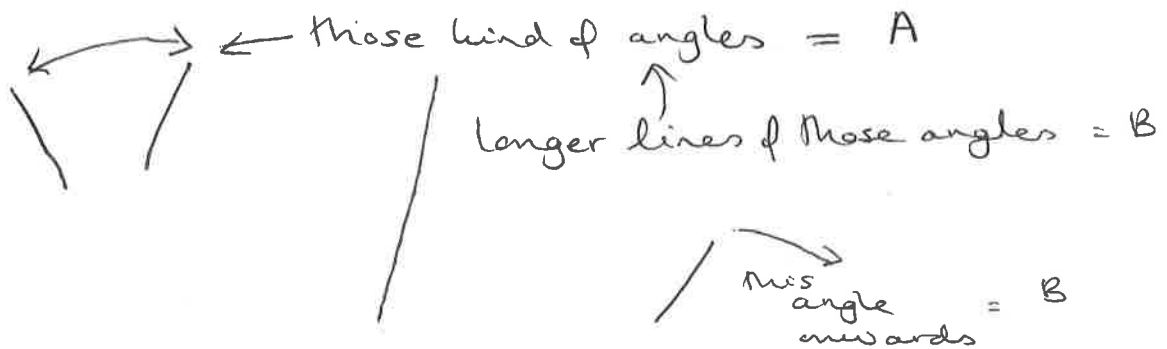 those kind of angles = A
longer lines of those angles = B
this
angle = B
onwards